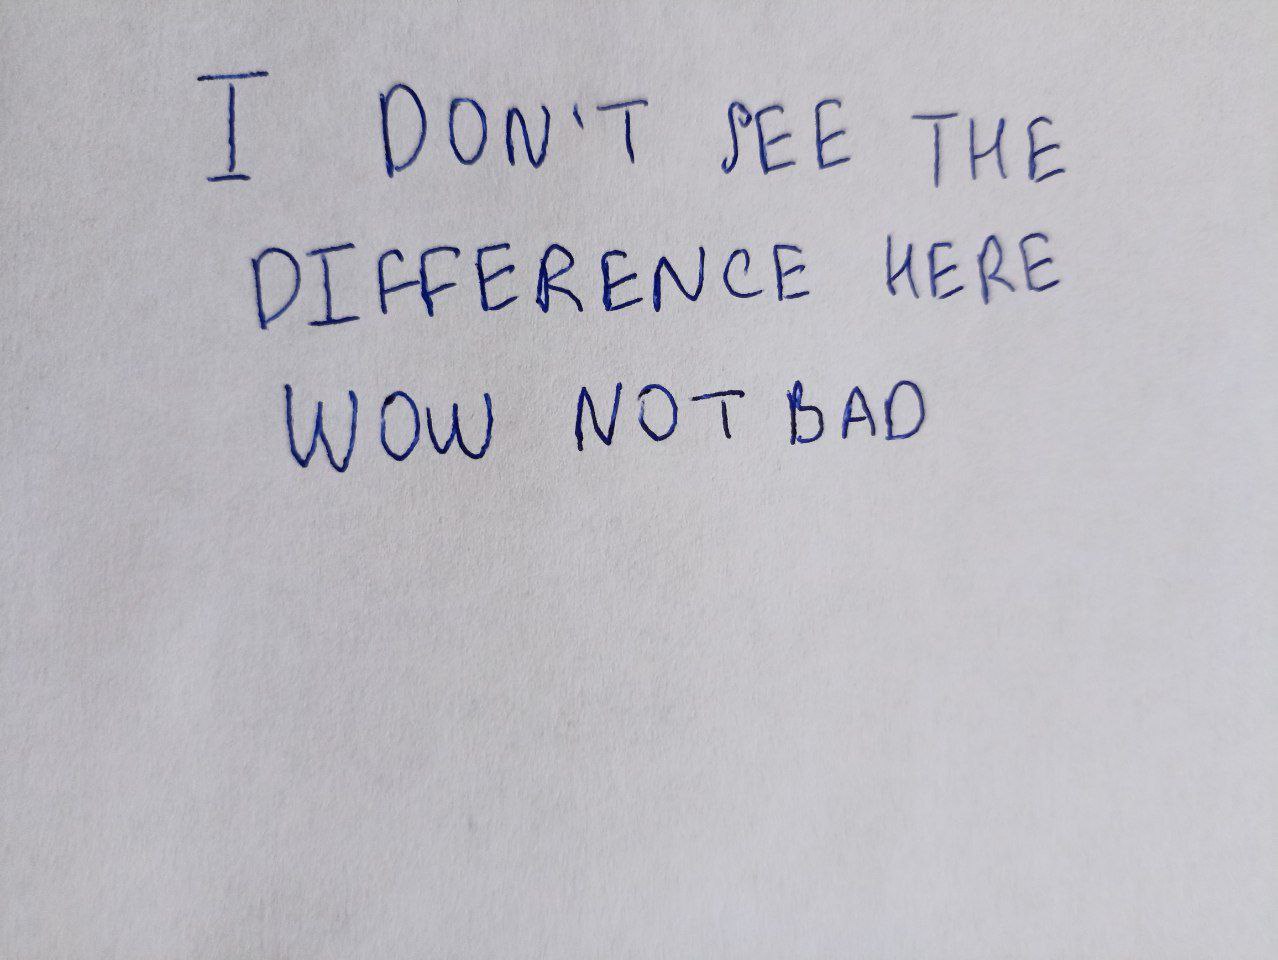 I DON'T SEE THE
DIFFERENCE HERE
WOW NOT BAD